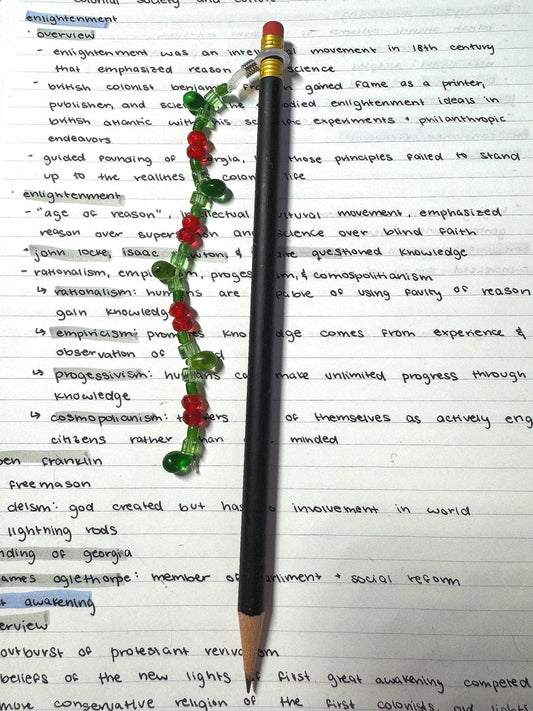 colonial society and culture
enlightenment
· overview
- enlightenment was an movement in 18th century
that emphasized reason science
- british colonist gained fame as a printer,
publisher, and enlightenment ideals in
british atlantic with his experiments + philanthropic
endeavors
- guided founding of those principles failed to stand
up to the realities life
· enlightenment
- "age of reason", movement, emphasized
reason over science over blind faith
- john locke, isaac & questioned knowledge
- rationalism, & cosmospolitianism
↳ rationalism: humans are of using favity of reason
gain knowledge
↳ empiricism: comes from experience &
observation of
↳ progessivism: make unlimited progress through
knowledge
↳ cosmopolianism: of themselves as actively eng
citizens rather than minded
ben franklin
freemason
deism: god created but involvement in world
lightning rods
nding of georgia
ames oglethorpe: member of + social reform
t awakening
erview
outburst of protestant
beliefs of the new lights first great awakening competed
more conservative religion of the first colonists, old lights